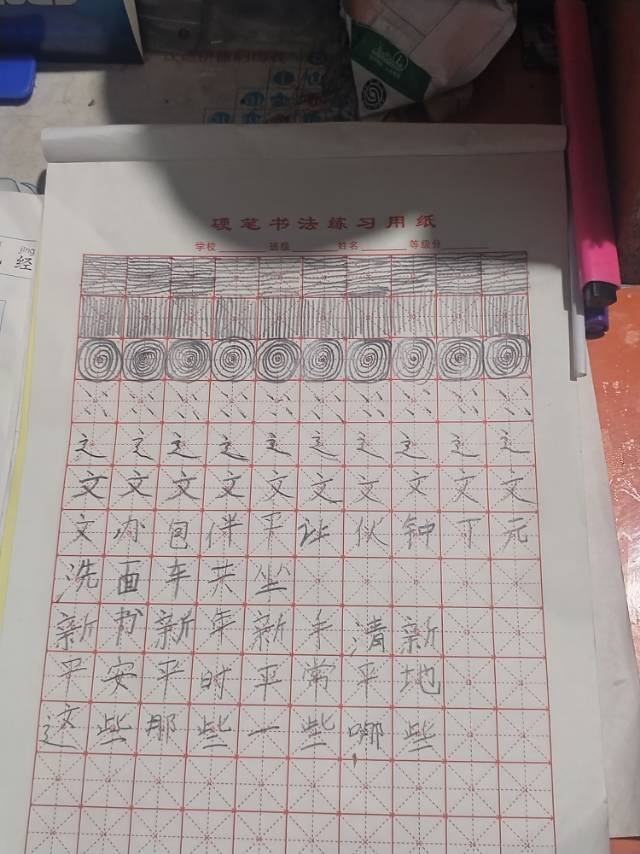 jīng
经
硬笔书法练习用纸
学校 班级 姓名 等级分
辶 辶 辶 辶 辶 辶 辶 辶 辶 辶
文 文 文 文 文 文 文 文 文 文
文 办 包 伴 平 让 伙 钟 丁 元
洗 面 车 共 坐
新 书 新 年 新 手 清 新
平 安 平 时 平 常 平 地
这 些 那 些 一 些 哪 些